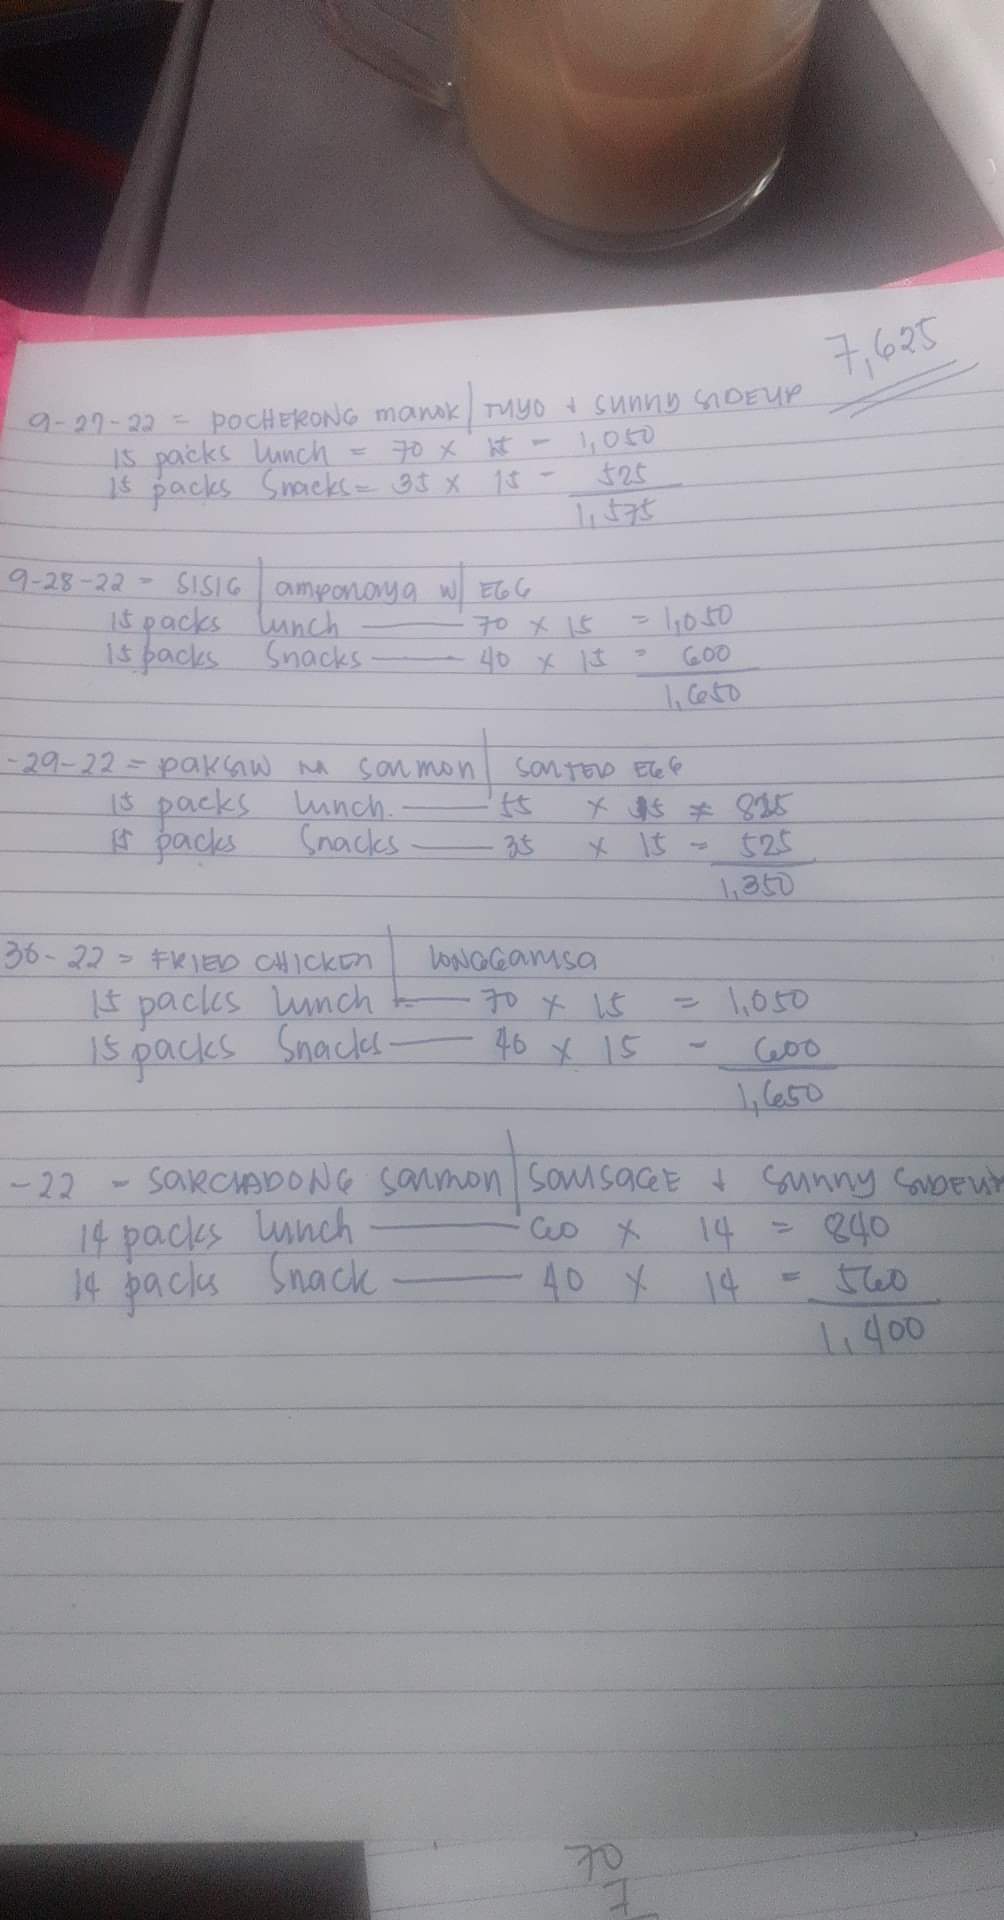 7,625
9-27-22 = POCHERONG manok | TUYO + sunny SIDEUP
15 packs lunch = 70 x 15 - 1,050
15 packs Snacks = 35 x 15 - 525
1,575
9-28-22 - SISIG | amponaya w/ EGG
15 packs lunch — 70 x 15 = 1,050
15 packs Snacks — 40 x 15 = 600
1,650
-29-22 = PAKSIW na salmon | SALTED EGG
15 packs lunch. — 55 x 15 = 825
15 packs Snacks — 35 x 15 = 525
1,350
30-22 = FRIED CHICKEN | LONGGANISA
15 packs lunch — 70 x 15 = 1,050
15 packs Snacks — 40 x 15 - 600
1,650
-22 - SARCIADONG salmon | SAUSAGE + sunny SIDEUP
14 packs lunch — 60 x 14 = 840
14 packs Snack — 40 x 14 = 560
1,400
70
7